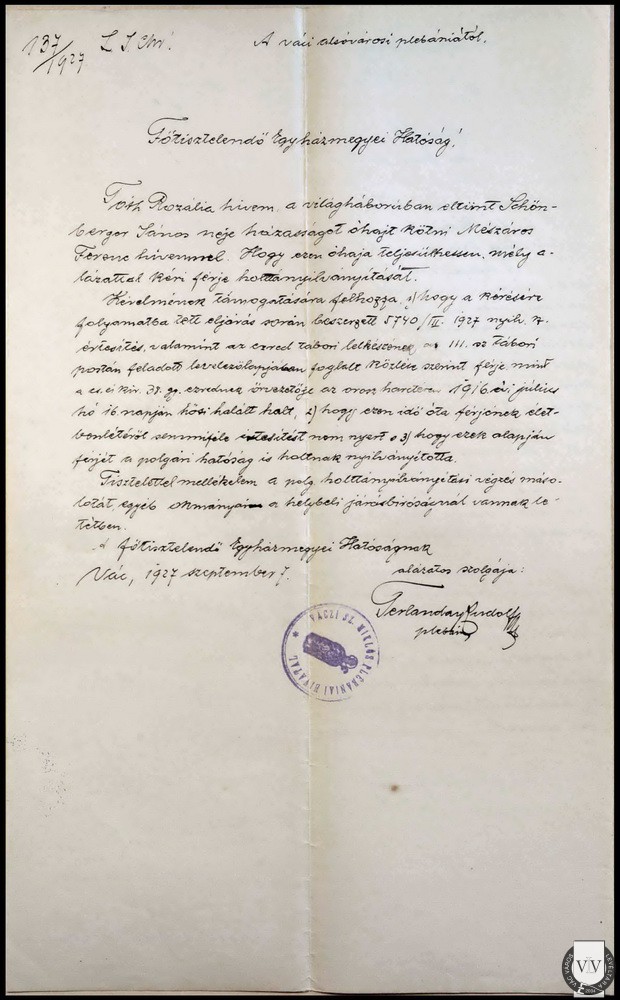 137/1927 L. J. Chr! A váci alsóvárosi plebániától.
Főtisztelendő Egyházmegyei Hatóság!
Tóth Rozália hivem, a világháborúban eltünt Schön-
berger János neje házasságot óhajt kötni Mészáros
Ferenc hivemmel. Hogy ezen óhaja teljesülhessen, mély a-
lázattal kéri férje holttányilvánitását.
Kérelmének támogatására felhozza, 1) hogy a kérésére
folyamatba tett eljárás során beszerzett 5740/II. 1927 nyilv. sz.
értesités, valamint az ezred tábori lelkészének, a III. sz tábori
postán feladott levelezőlapjában foglalt közlés szerint férje, mint
a cs. és kir. 38. gy. ezrednek őrvezetője az orosz harctéren 1916. évi julius
hó 16. napján hősi halált halt, 2) hogy ezen idő óta férjének élet-
benlétéről semmiféle értesitést nem nyert s 3) hogy ezek alapján
férjét a polgári hatóság is holtnak nyilvánitotta.
Tisztelettel mellékelem a polg. holttányilvánitási végzés máso-
latát, egyéb okmányai a helybeli járásbiróságnál vannak le-
tétben.
A főtisztelendő Egyházmegyei Hatóságnak
Vác, 1927 szeptember 7. alázatos szolgája:
Terlanday Rudolf
plebános
VÁCZI SZ. MIKLÓS PLEBÁNIAI HIVATAL *
VÁC VÁROS LEVÉLTÁRA
VVL